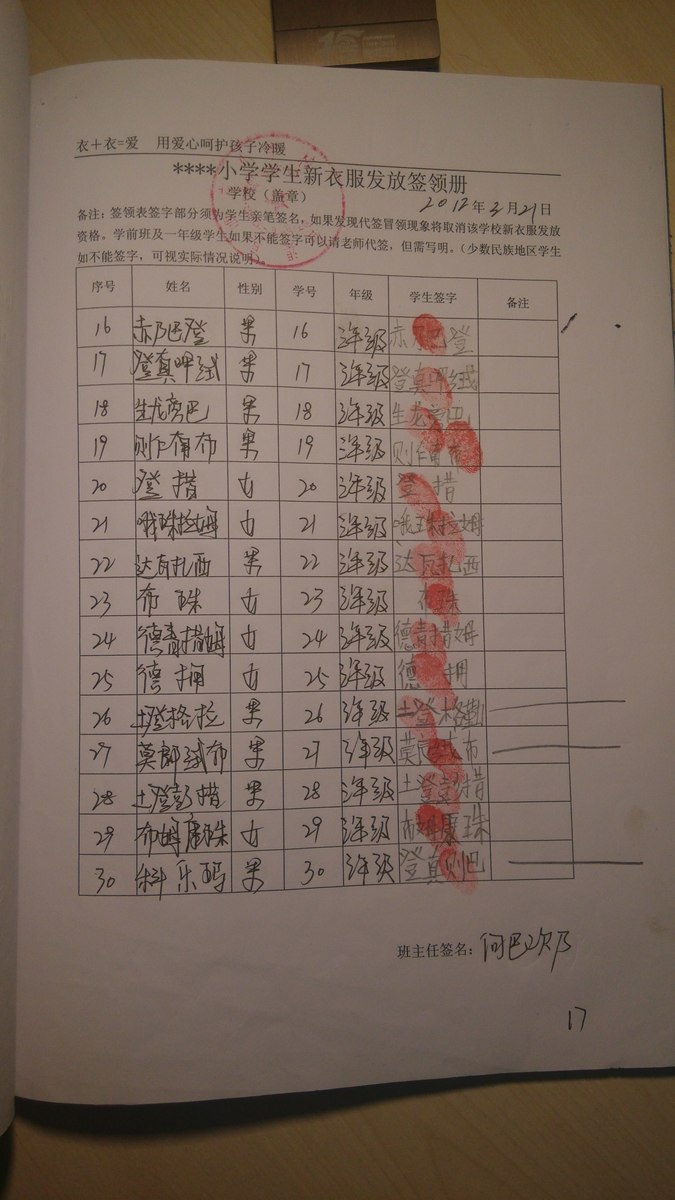 衣+衣=爱 用爱心呵护孩子冷暖
****小学学生新衣服发放签领册
学校（盖章） 2012年3月21日
备注：签领表签字部分须为学生亲笔签名，如果发现代签冒领现象将取消该学校新衣服发放
资格。学前班及一年级学生如果不能签字可以请老师代签，但需写明。（少数民族地区学生
如不能签字，可视实际情况说明）。
序号 姓名 性别 学号 年级 学生签字 备注
16 赤乃巴登 男 16 三年级 赤乃巴登
17 登真呷绒 男 17 三年级 登真呷绒
18 生龙旁巴 男 18 三年级 生龙旁巴
19 则乍甭布 男 19 三年级 则乍甭布
20 登措 女 20 三年级 登措
21 哦珠拉姆 女 21 三年级 哦珠拉姆
22 达瓦扎西 男 22 三年级 达瓦扎西
23 布珠 女 23 三年级 布珠
24 德青措姆 女 24 三年级 德青措姆
25 德拥 女 25 三年级 德拥
26 土登格拉 男 26 三年级 土登格勒
27 莫郎绒布 男 27 三年级 莫郎绒布
28 土登彭措 男 28 三年级 土登彭措
29 布姆康珠 女 29 三年级 布姆康珠
30 科乐玛 男 30 三年级 登真则巴
班主任签名：何巴次乃
17